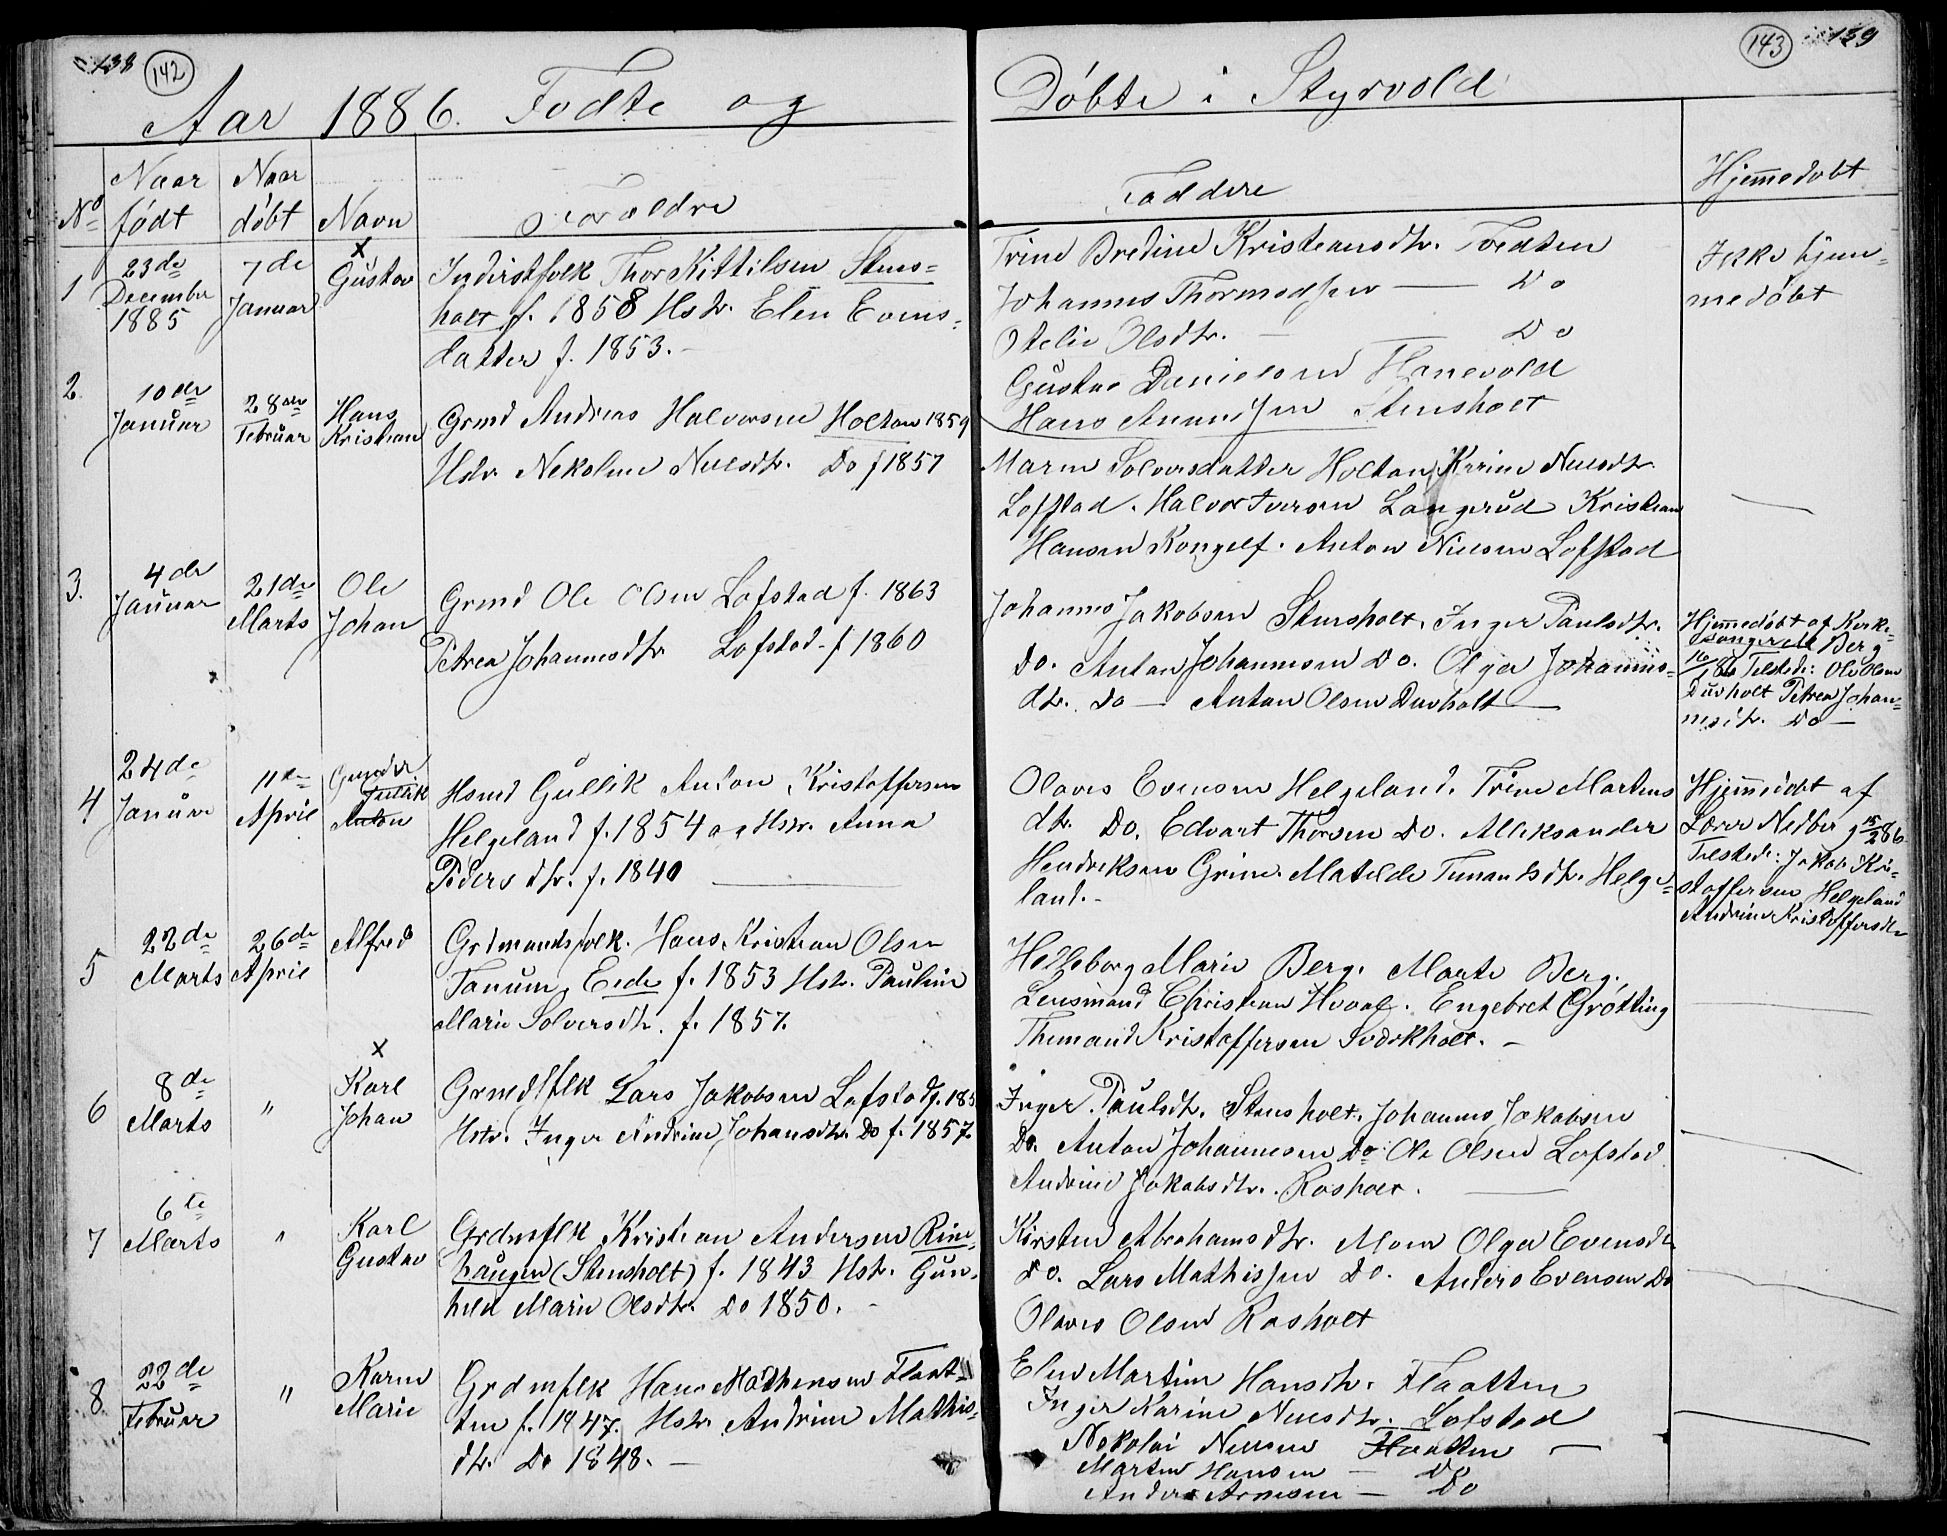 138 142
Aar 1886. Fodte og
No Naar født Naar døbt Navn Forældre
1 23de December 1885 7de Januar Gustav
Inderstfolk Thor Kittilsen Stens=
holt f. 1858 Hstr. Elen Evens=
datter f. 1853.
2. 10de Januar 28de Februar Hans Kristian
Grmd Andreas Halvorsen Holtan 1859
Hstr Nekoline Nielsdtr. Do f 1857
3. 4de Januar 21de Marts Ole Johan
Grmd Ole Olsen Lofstad f. 1863
Petrea Johannesdtr Lofstad f 1860
4 24de Januar 11te April Gunder Gullik Anton
Hsmd Gullik Anton Kristoffersen
Helgeland f. 1854 og Hstr. Anna
Pedersdtr. f. 1840
5 22de Marts 26de April Alfred
Grdmandsfolk. Hans Kristian Olsen
Fanum, Eede f. 1853 Hstr. Pauline
Marie Solversdtr. f. 1857.
6 8de Marts " Karl Johan
Grmdsflk Lars Jakobsen Lofstad f. 185
Hstr. Inger Andrine Johansdtr. Do f. 1857.
7 6te Marts " Karl Gustav
Grdmflk Kristian Andersen Rine-
haugen (Stensholt) f. 1843 Hstr. Gun-
hild Marie Olsdtr. Do 1850.
8. 22de Februar " Karen Marie
Grdmflk Hans Mathensen Flaat-
ten f. 1847. Hstr Andrine Mathis-
dtr. Do 1848.
143 139
Døbte i Styrvold
Faddere Hjemmedøbt
Trine Bredine Kristiansdtr. Tvedten
Johannes Thormodsen — Do
Otelie Olsdtr. — Do
Gustav Danielsen Hanevold
Hans Amundsen Stensholt
Ikke hjem=
medøbt
Maren Solversdatter Holtan, Karine Nielsdtr.
Lofstad. Halvor Iversen Langerud Kristian
Hansen Kongelf. Anton Nielsen Lofstad
—
Johannes Jakobsen Stensholt, Inger Paulsdtr.
Do. Anton Johannesen Do. Olga Johannes=
dtr. Do — Anton Olsen Duvholt —
Hjemmedøbt af Kirke=
sanger M Berg
16/1 86 Tilstede: Ole Olsen
Duvholt Petrea Johan=
nesdtr. Do —
Olaves Evensen Helgeland. Trine Martens
dtr. Do. Edvart Thorsen Do. Alleksander
Hendriksen Grine. Matilde Tumansdtr. Helge=
land.
Hjemmedøbt af
Lærer Nedberg 15/2 86
Tilstede: Jakob Kri=
stoffersen Helgeland
Andrine Kristoffersdtr
Helleborg Marie Berg. Marte Berg.
Lensmand Christian Hvaal. Engebret Grøtting
Themand Kristoffersen Svarkholt.
Inger Paulsdtr. Stensholt, Johannes Jakobsen
Do. Anton Johannesen Do Ole Olsen Lofstad
Andrine Jakobsdtr. Rasholt.
Kirsten Abrahamsdtr. Moen Olga Evensdtr
Do. Lars Mathissen Do. Anders Evensen Do
Olaves Olsen Rasholt
Elen Martine Hansdtr. Flaatten
Inger Karine Nielsdtr. Lofstad
Nekolai Nielsen Flaatten —
Martin Hansen — Do
Anders Arnesen — Do